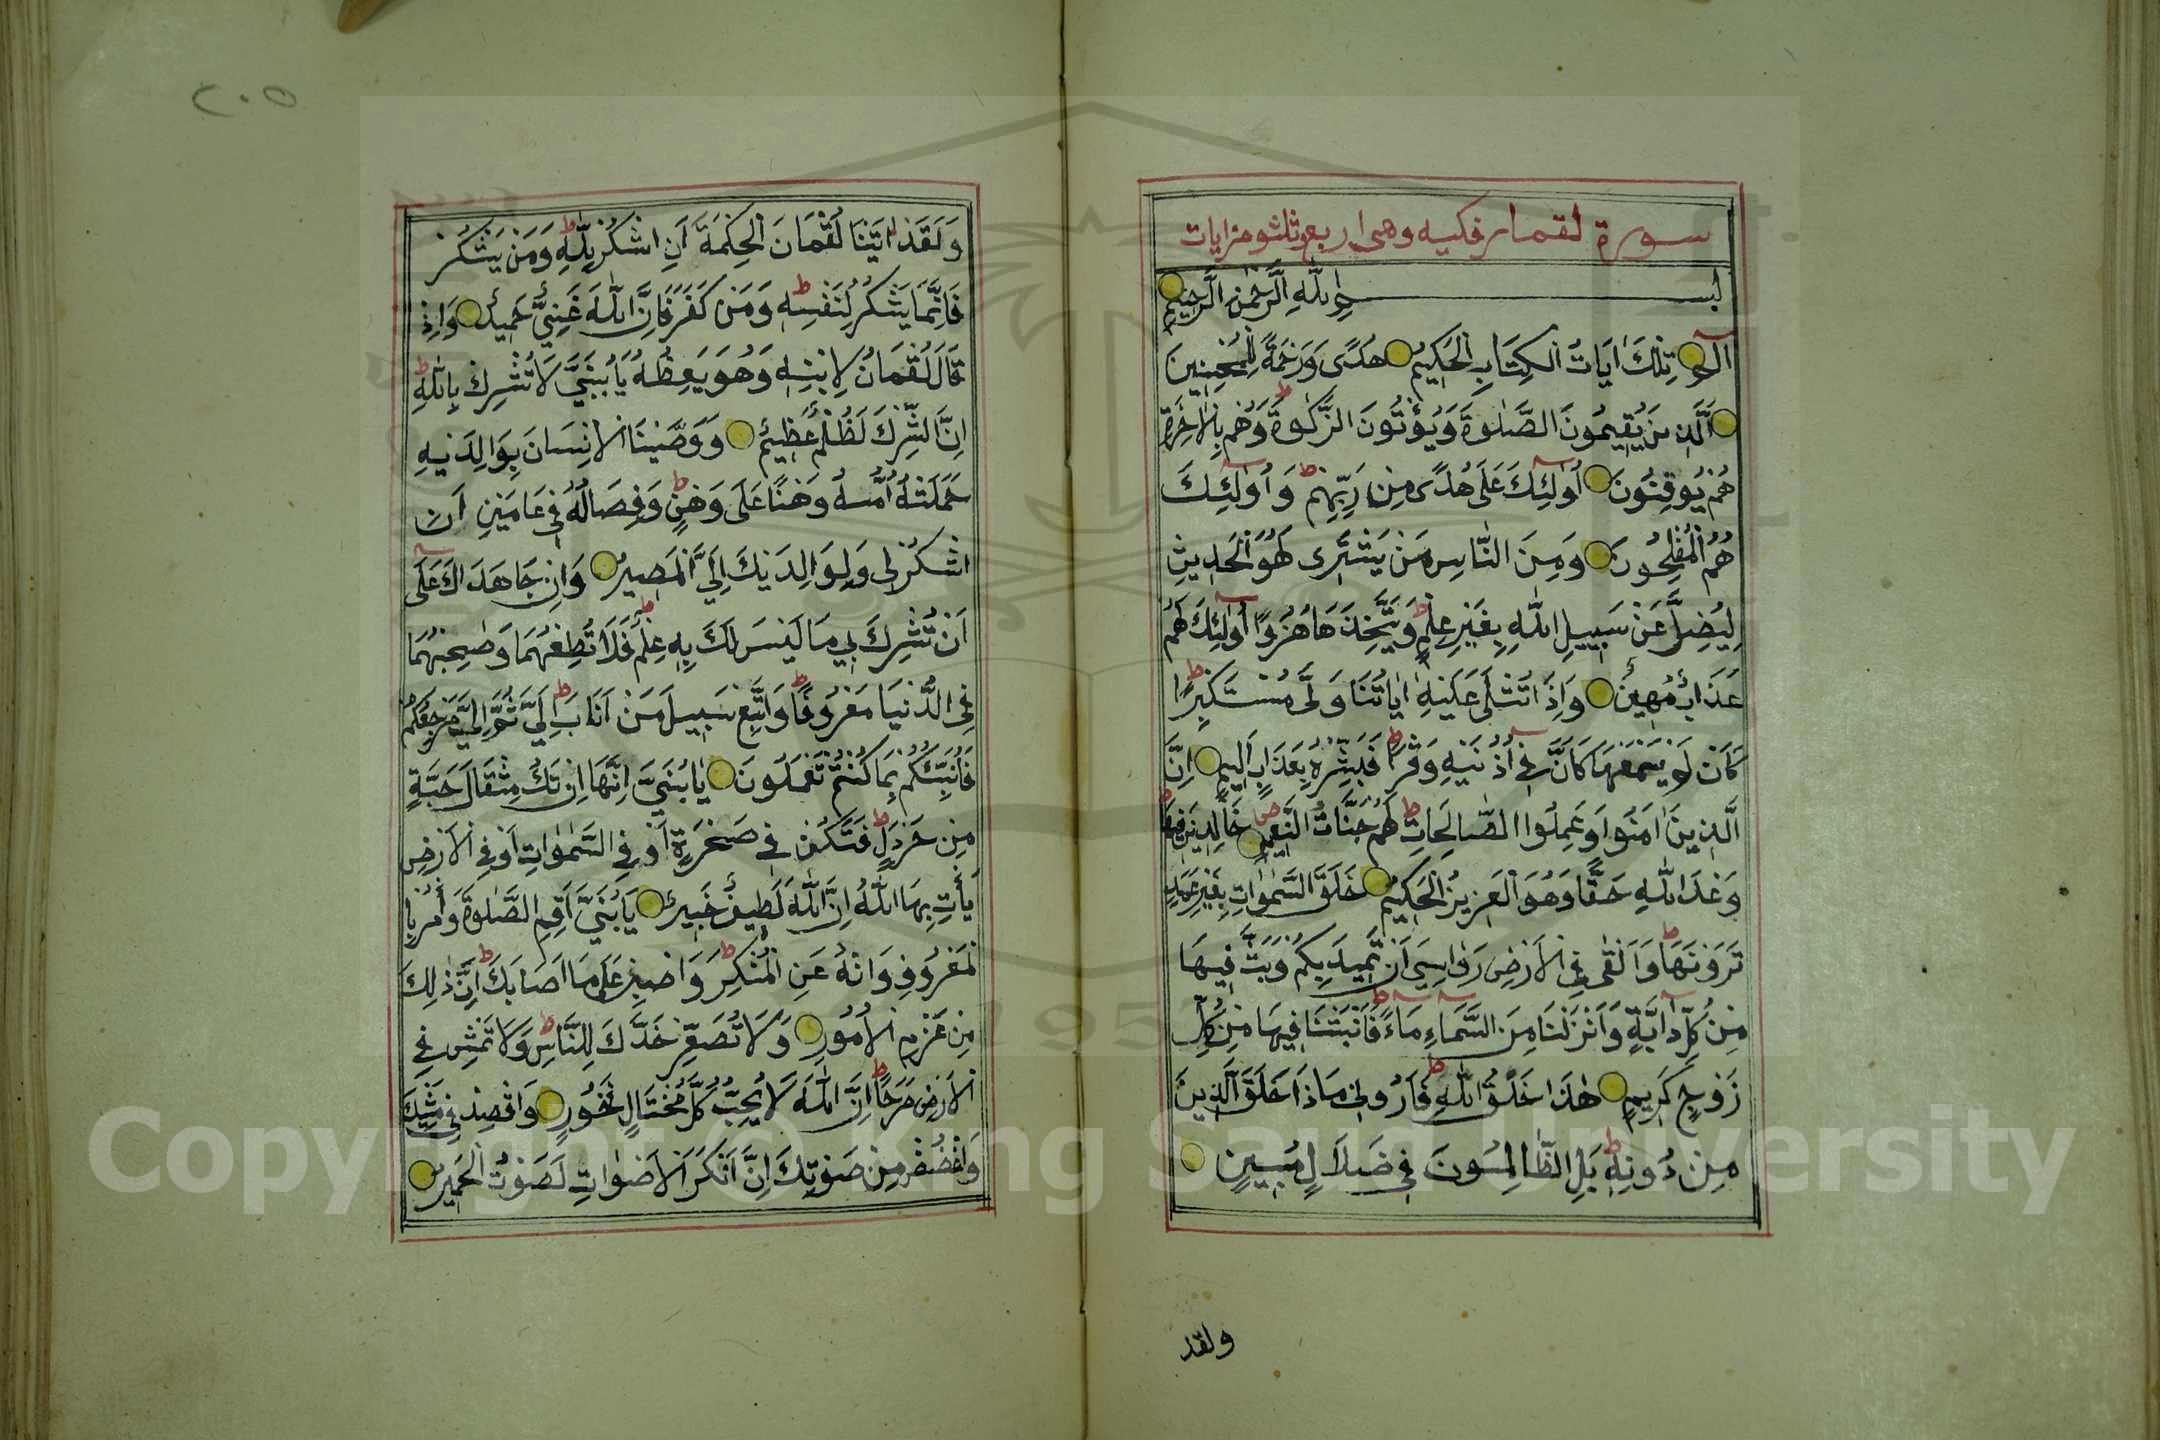 سورة لقمان مكيه وهي اربع وثلثون ايات
بسم الله الرحمن الرحيم
الم تلك ايات الكتاب الحكيم هدى ورحمة للمحسنين
الذين يقيمون الصلوة ويؤتون الزكوة وهم بالاخرة
هم يوقنون اولئك على هدى من ربهم واولئك
هم المفلحون ومن الناس من يشترى لهو الحديث
ليضل عن سبيل الله بغير علم ويتخذها هزوا اولئك لهم
عذاب مهين واذا تتلى عليه اياتنا ولى مستكبرا
كان لم يسمعها كان في اذنيه وقرا فبشره بعذاب اليم ان
الذين امنوا وعملوا الصالحات لهم جنات النعيم خالدين فيها
وعد الله حقا وهو العزيز الحكيم خلق السموات بغير عمد
ترونها والقى في الارض رواسي ان تميد بكم وبث فيها
من كل دابة وانزلنا من السماء ماء فانبتنا فيها من كل
زوج كريم هذا خلق الله فاروني ماذا خلق الذين
من دونه بل الظالمون في ضلال مبين
ولقد
٢٠٥
ولقد اتينا لقمان الحكمة ان اشكر لله ومن يشكر
فانما يشكر لنفسه ومن كفر فان الله غني حميد واذ
قال لقمان لابنه وهو يعظه يا بني لا تشرك بالله
ان الشرك لظلم عظيم ووصينا الانسان بوالديه
حملته امه وهنا على وهن وفصاله في عامين ان
اشكر لي ولوالديك الي المصير وان جاهداك على
ان تشرك بي ما ليس لك به علم فلا تطعهما وصاحبهما
في الدنيا معروفا واتبع سبيل من اناب الي ثم الي مرجعكم
فانبئكم بما كنتم تعملون يا بني انها ان تك مثقال حبة
من خردل فتكن في صخرة او في السموات او في الارض
يأت بها الله ان الله لطيف خبير يا بني اقم الصلوة وأمر با
لمعروف وانه عن المنكر واصبر على ما اصابك ان ذلك
من عزم الامور ولا تصعر خدك للناس ولا تمش في
الارض مرحا ان الله لا يحب كل مختال فخور واقصد في مشيك
واغضض من صوتك ان انكر الاصوات لصوت الحمير
1957
Copyright © King Saud University